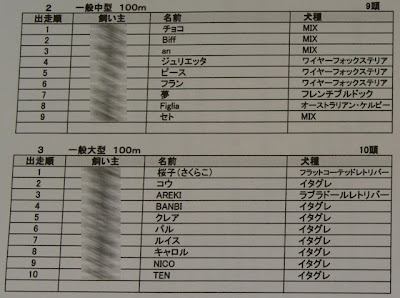 2 一般中型 100m 9頭
出走順 飼い主 名前 犬種
1 チョコ MIX
2 Biff MIX
3 an MIX
4 ジュリエッタ ワイヤーフォックステリア
5 ピース ワイヤーフォックステリア
6 フラン ワイヤーフォックステリア
7 夢 フレンチブルドック
8 Figlia オーストラリアン・ケルピー
9 セト MIX
3 一般大型 100m 10頭
出走順 飼い主 名前 犬種
1 桜子(さくらこ) フラットコーテッドレトリバー
2 コウ イタグレ
3 AREKI ラブラドールレトリバー
4 BANBI イタグレ
5 クレア イタグレ
6 バル イタグレ
7 ルイス イタグレ
8 キャロル イタグレ
9 NICO イタグレ
10 TEN イタグレ